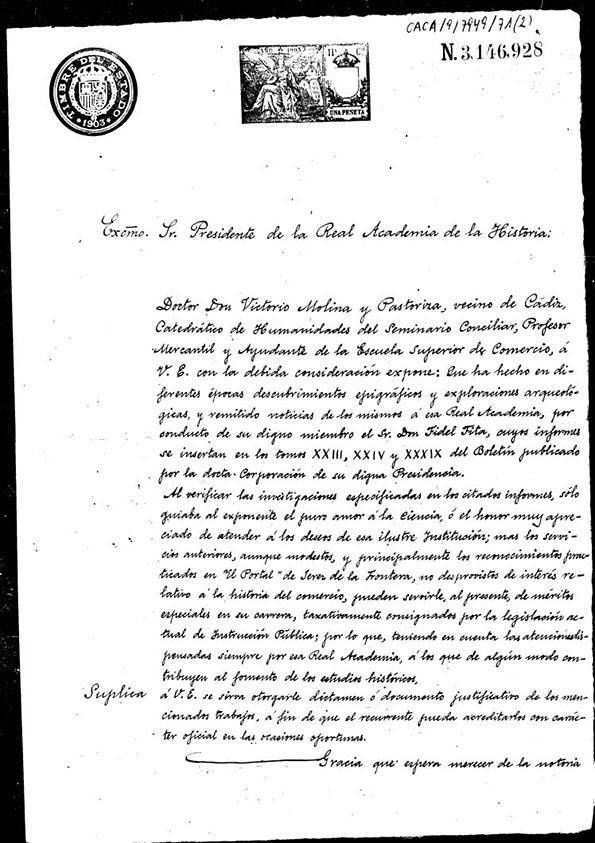 CACA/9/7949/71(2)
N. 3.146,928
TIMBRE DEL ESTADO
1903
AÑO 1903
UNA PESETA
Excmo. Sr. Presidente de la Real Academia de la Historia:
Doctor Don Victorio Molina y Pastoriza, vecino de Cádiz,
Catedrático de Humanidades del Seminario Conciliar, Profesor
Mercantil y Ayudante de la Escuela Superior de Comercio, á
V. E. con la debida consideración expone: Que ha hecho en di-
ferentes épocas descubrimientos epigráficos y exploraciones arqueoló-
gicas, y remitido noticias de los mismos á esa Real Academia, por
conducto de su digno miembro el Sr. Don Fidel Fita, cuyos informes
se insertan en los tomos XXIII, XXIV y XXXIX del Boletín publicado
por la docta Corporación de su digna Presidencia.
Al verificar las investigaciones especificadas en los citados informes, sólo
guiaba al exponente el puro amor á la Ciencia, ó el honor muy apre-
ciado de atender á los deseos de esa ilustre Institución; mas los servi-
cios anteriores, aunque modestos, y principalmente los reconocimientos prac-
ticados en "El Portal" de Jerez de la Frontera, no desprovistos de interés re-
lativo á la historia del comercio, pueden servirle, al presente, de méritos
especiales en su carrera, taxativamente consignados por la legislación ac-
tual de Instrucción Pública; por lo que, teniendo en cuenta las atenciones dis-
pensadas siempre por esa Real Academia, á los que de algún modo con-
tribuyen al fomento de los estudios históricos,
Suplica á V. E. se sirva otorgarle dictamen ó documento justificativo de los men-
cionados trabajos, á fin de que el recurrente pueda acreditarlos con carác-
ter oficial en las ocasiones oportunas.
Gracia que espera merecer de la notoria